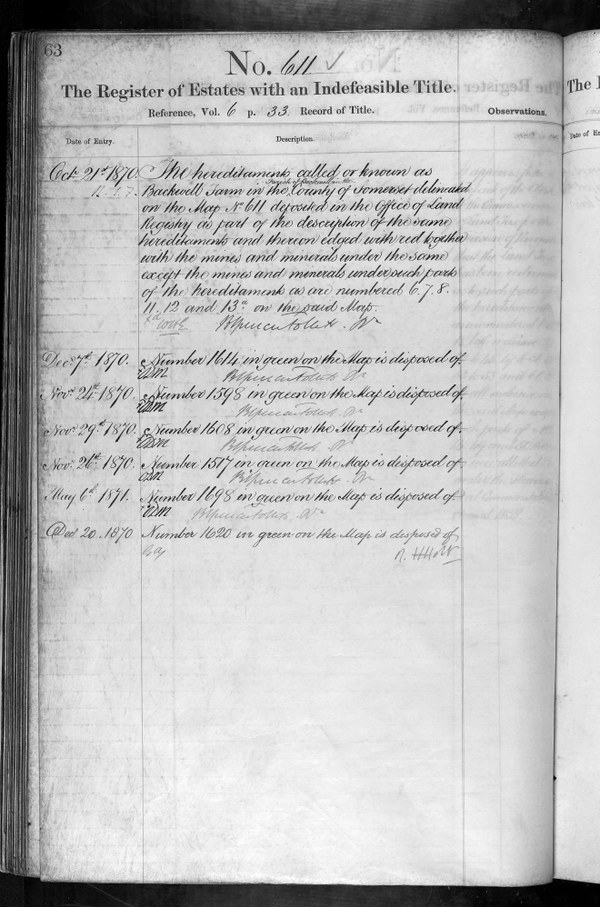 63
No. 611
The Register of Estates with an Indefeasible Title.
Reference, Vol. 6 p. 33. Record of Title.
Observations.
Date of Entry.
Description.
Oct. 21st 1870. The hereditaments called or known as
Parish of Backwell in the
Backwell Farm in the County of Somerset delineated
on the Map No 611 deposited in the Office of Land
Registry as part of the description of the same
hereditaments and thereon edged with red together
with the mines and minerals under the same
except the mines and minerals under such parts
of the hereditaments as are numbered 6. 7. 8.
11. 12 and 13a on the said Map.
Decr 7th 1870. Number 1614 in green on the Map is disposed of.
Novr 24th 1870. Number 1598 in green on the Map is disposed of.
Novr 29th 1870. Number 1608 in green on the Map is disposed of.
Novr 26th 1870. Number 1517 in green on the Map is disposed of.
May 6th 1871. Number 1698 in green on the Map is disposed of.
Decr 20. 1870 Number 1620 in green on the Map is disposed of
The
Date of En